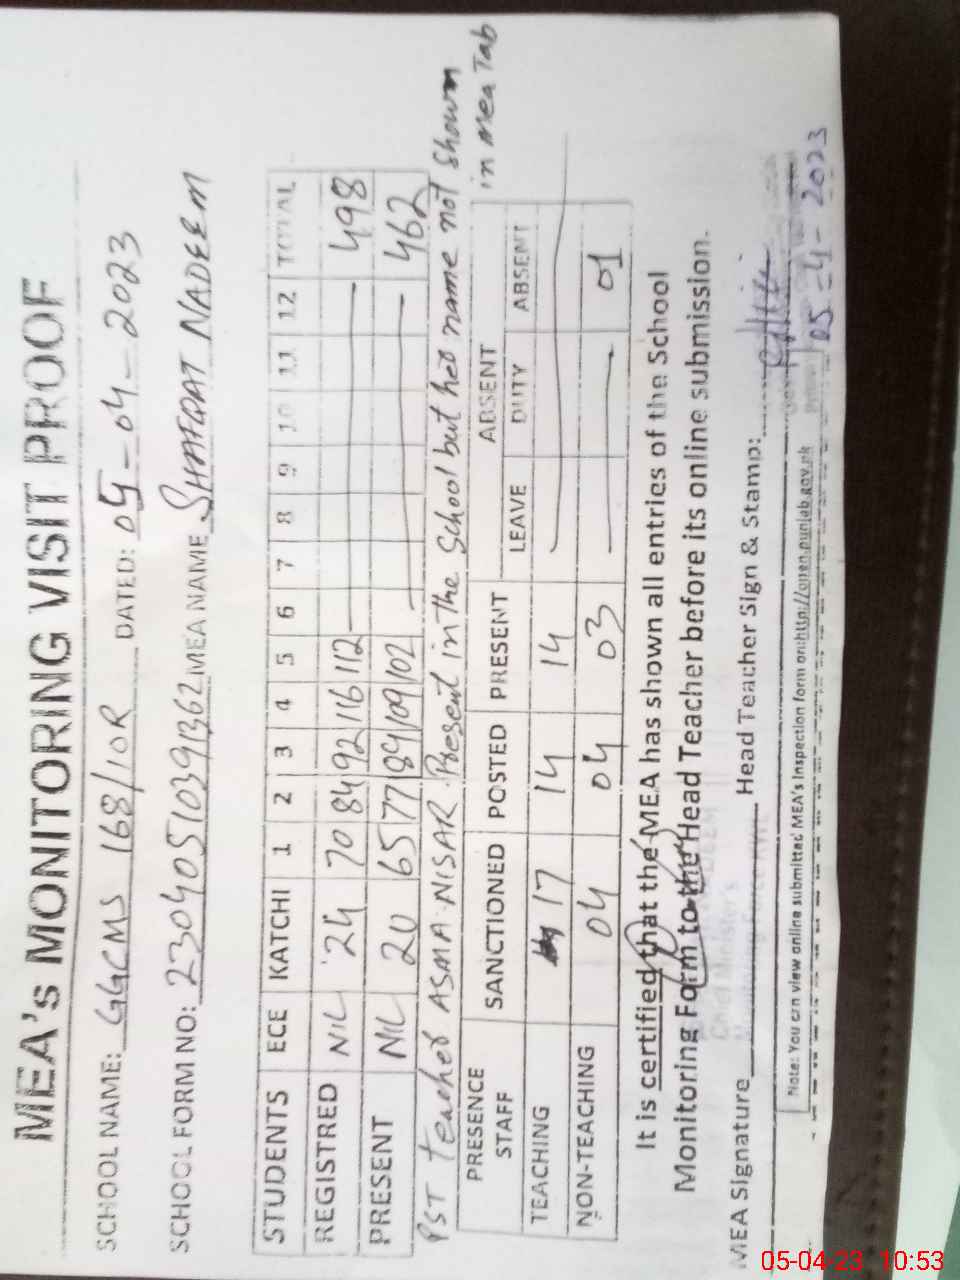 MEA's MONITORING VISIT PROOF
SCHOOL NAME: GGCMS 168/10R DATED: 05-04-2023
SCHOOL FORM NO: 23040510391362 MEA NAME SHAFQAT NADEEM
STUDENTS ECE KATCHI 1 2 3 4 5 6 7 8 9 10 11 12 TOTAL
REGISTRED NIL 24 70 84 92 116 112 498
PRESENT NIL 20 65 77 89 109 102 462
PST teacher ASMA NISAR Present in the School but her name not shown
in mea Tab
PRESENCE STAFF SANCTIONED POSTED PRESENT ABSENT
LEAVE DUTY ABSENT
TEACHING 17 14 14
NON-TEACHING 04 04 03 01
It is certified that the MEA has shown all entries of the School
Monitoring Form to the Head Teacher before its online submission.
MEA Signature Head Teacher Sign & Stamp:
05-4-2023
Note: You can view online submitted MEA's Inspection form on:http://open.punjab.gov.pk
05-04-23 10:53